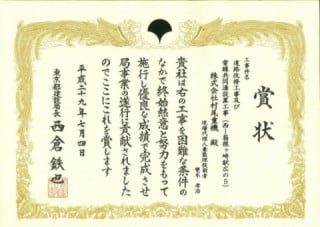 賞状
工事件名
道路改修工事及び
電線共同溝設置工事
株式会社村尾重機 殿
現場代理人兼監理技術者
貴社は右の工事を困難な条件の
なかで終始熱意と努力をもって
施行し優良な成績で完成させ
局事業の遂行に貢献されました
のでここにこれを賞します
平成二十九年七月四日
東京都建設局長
西倉鉄也